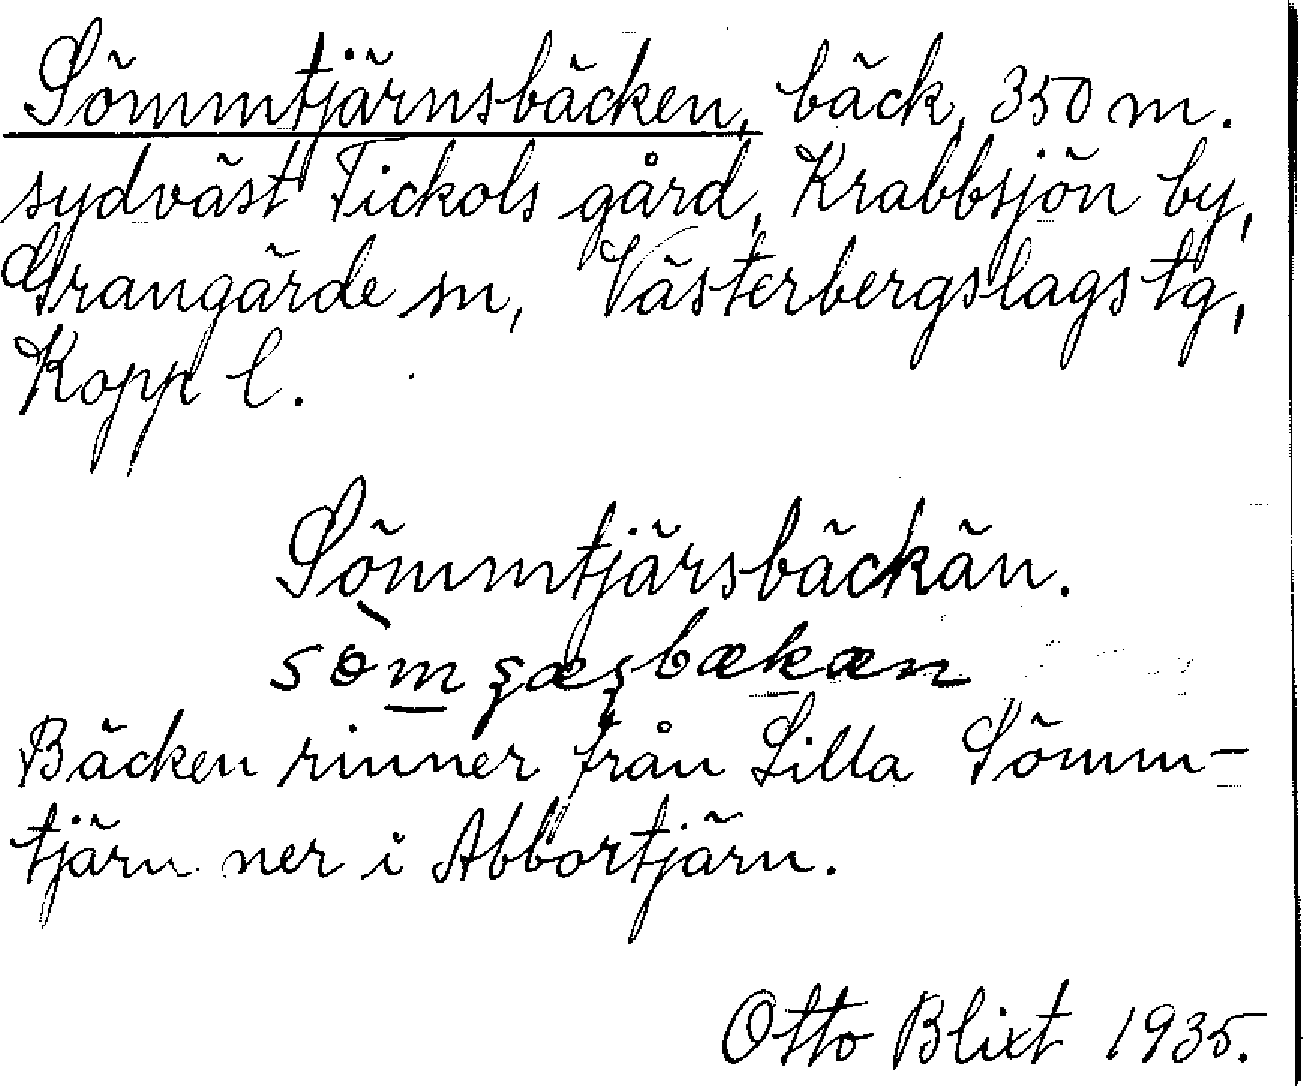 Sömmtjärnsbäcken, bäck, 350 m.
sydväst Tickols gård, Krabbsjön by,
Grangärde sn, Västerbergslags tg,
Kopp l.
Sömmtjärsbäckän.
Bäcken rinner från Lilla Sömm-
tjärn ner i Abbortjärn.
Otto Blixt 1935.